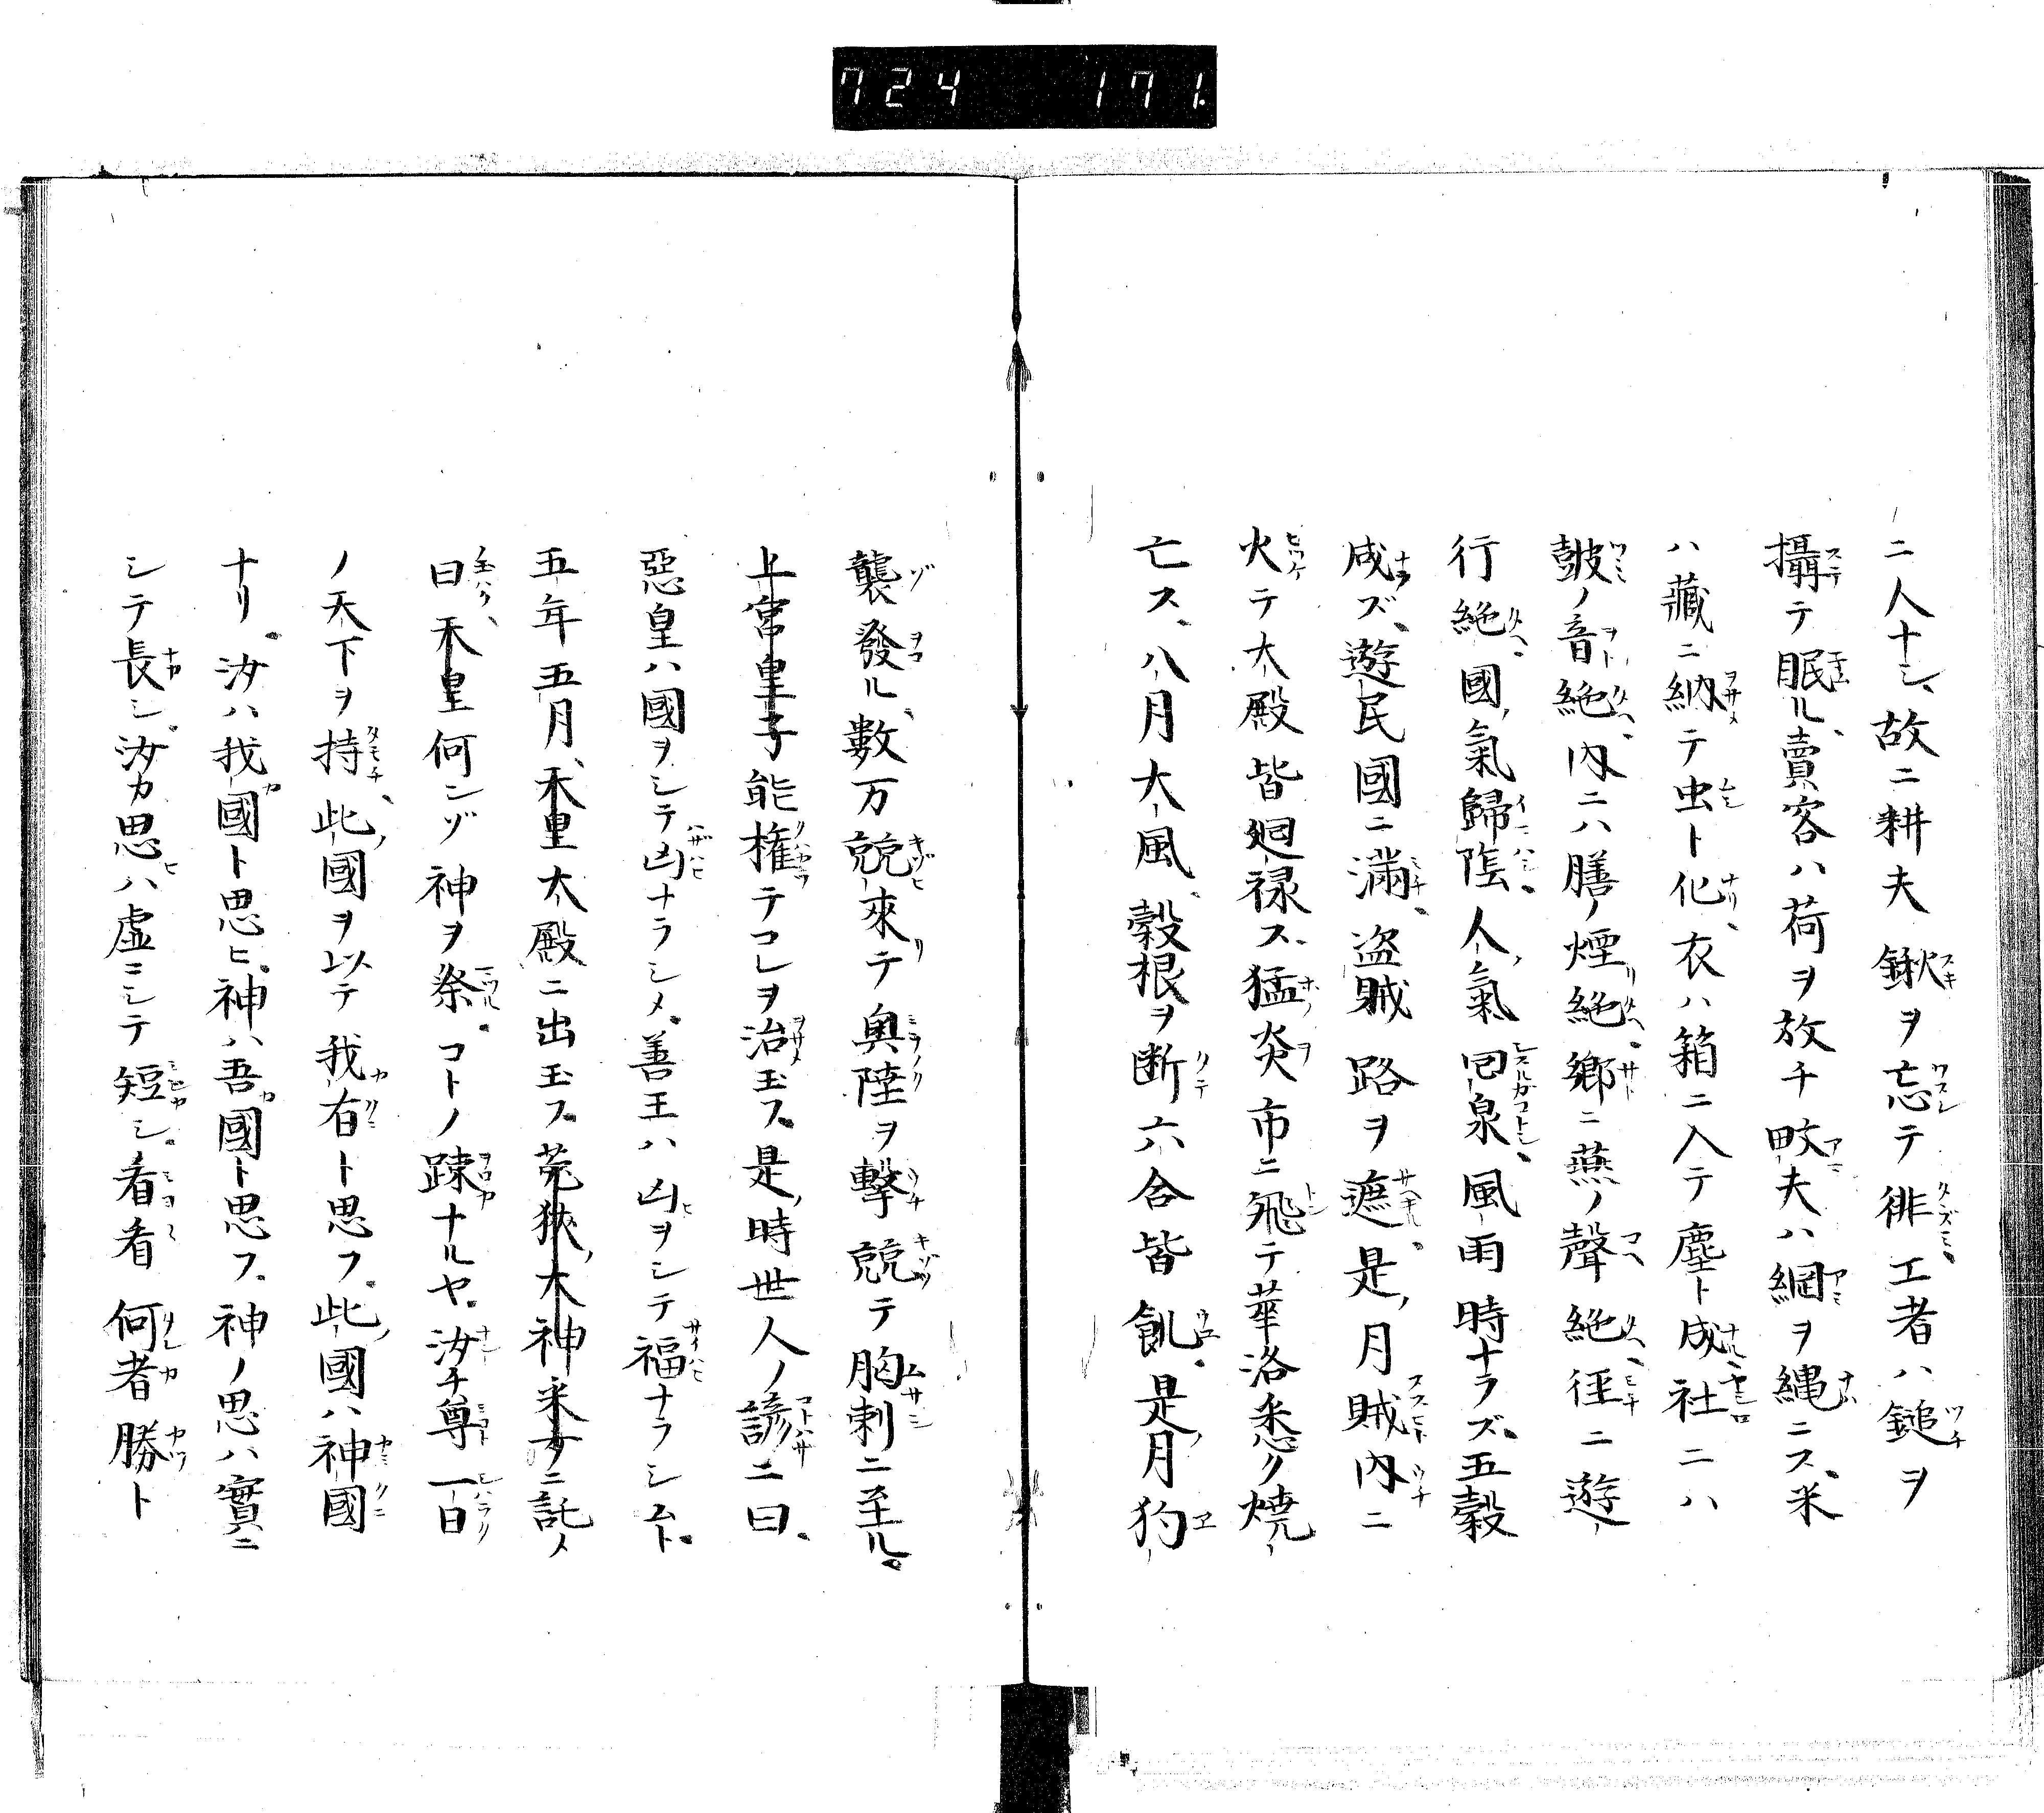 724 171.
ニ人ナシ、故ニ耕夫鍬ヲ忘テ徘工者ハ鎚ヲ
攝テ眠ル、賣客ハ荷ヲ放チ畋夫ハ綱ヲ縄ニス、米
ハ藏ニ納テ虫ト化、衣ハ箱ニ入テ塵ト成、社ニハ
皷ノ音絶、内ニハ膳ノ煙絶、郷ニ燕ノ聲絶、徑ニ遊
行絶、國氣歸陰、人氣回泉、風雨時ナラズ、五穀
成ズ、遊民國ニ滿、盗賊路ヲ遮、是月賊内ニ
火テ大殿皆廻禄ス、猛炎市ニ飛テ華洛悉ク焼
亡ス、八月大風、穀根ヲ断六合皆飢、是月狗
襲發ル、數万競來テ奥陸ヲ撃競テ胸刺ニ至ル。
上宮皇子能權テコレヲ治玉ス、是時世人ノ諺ニ曰、
惡皇ハ國ヲシテ凶ナラシメ、善王ハ凶ヲシテ福ナラシムト、
五年五月、天皇大殿ニ出玉ス、菟狹大神采女ニ託ノ
曰、天皇何ンゾ神ヲ祭コトノ踈ナルヤ、汝チ尊一日
ノ天下ヲ持、此國ヲ以テ我有ト思フ、此國ハ神國
ナリ、汝ハ我國ト思ヒ、神ハ吾國ト思フ、神ノ思ハ實ニ
シテ長シ、汝カ思ハ虚ニシテ短シ、看看何者勝ト